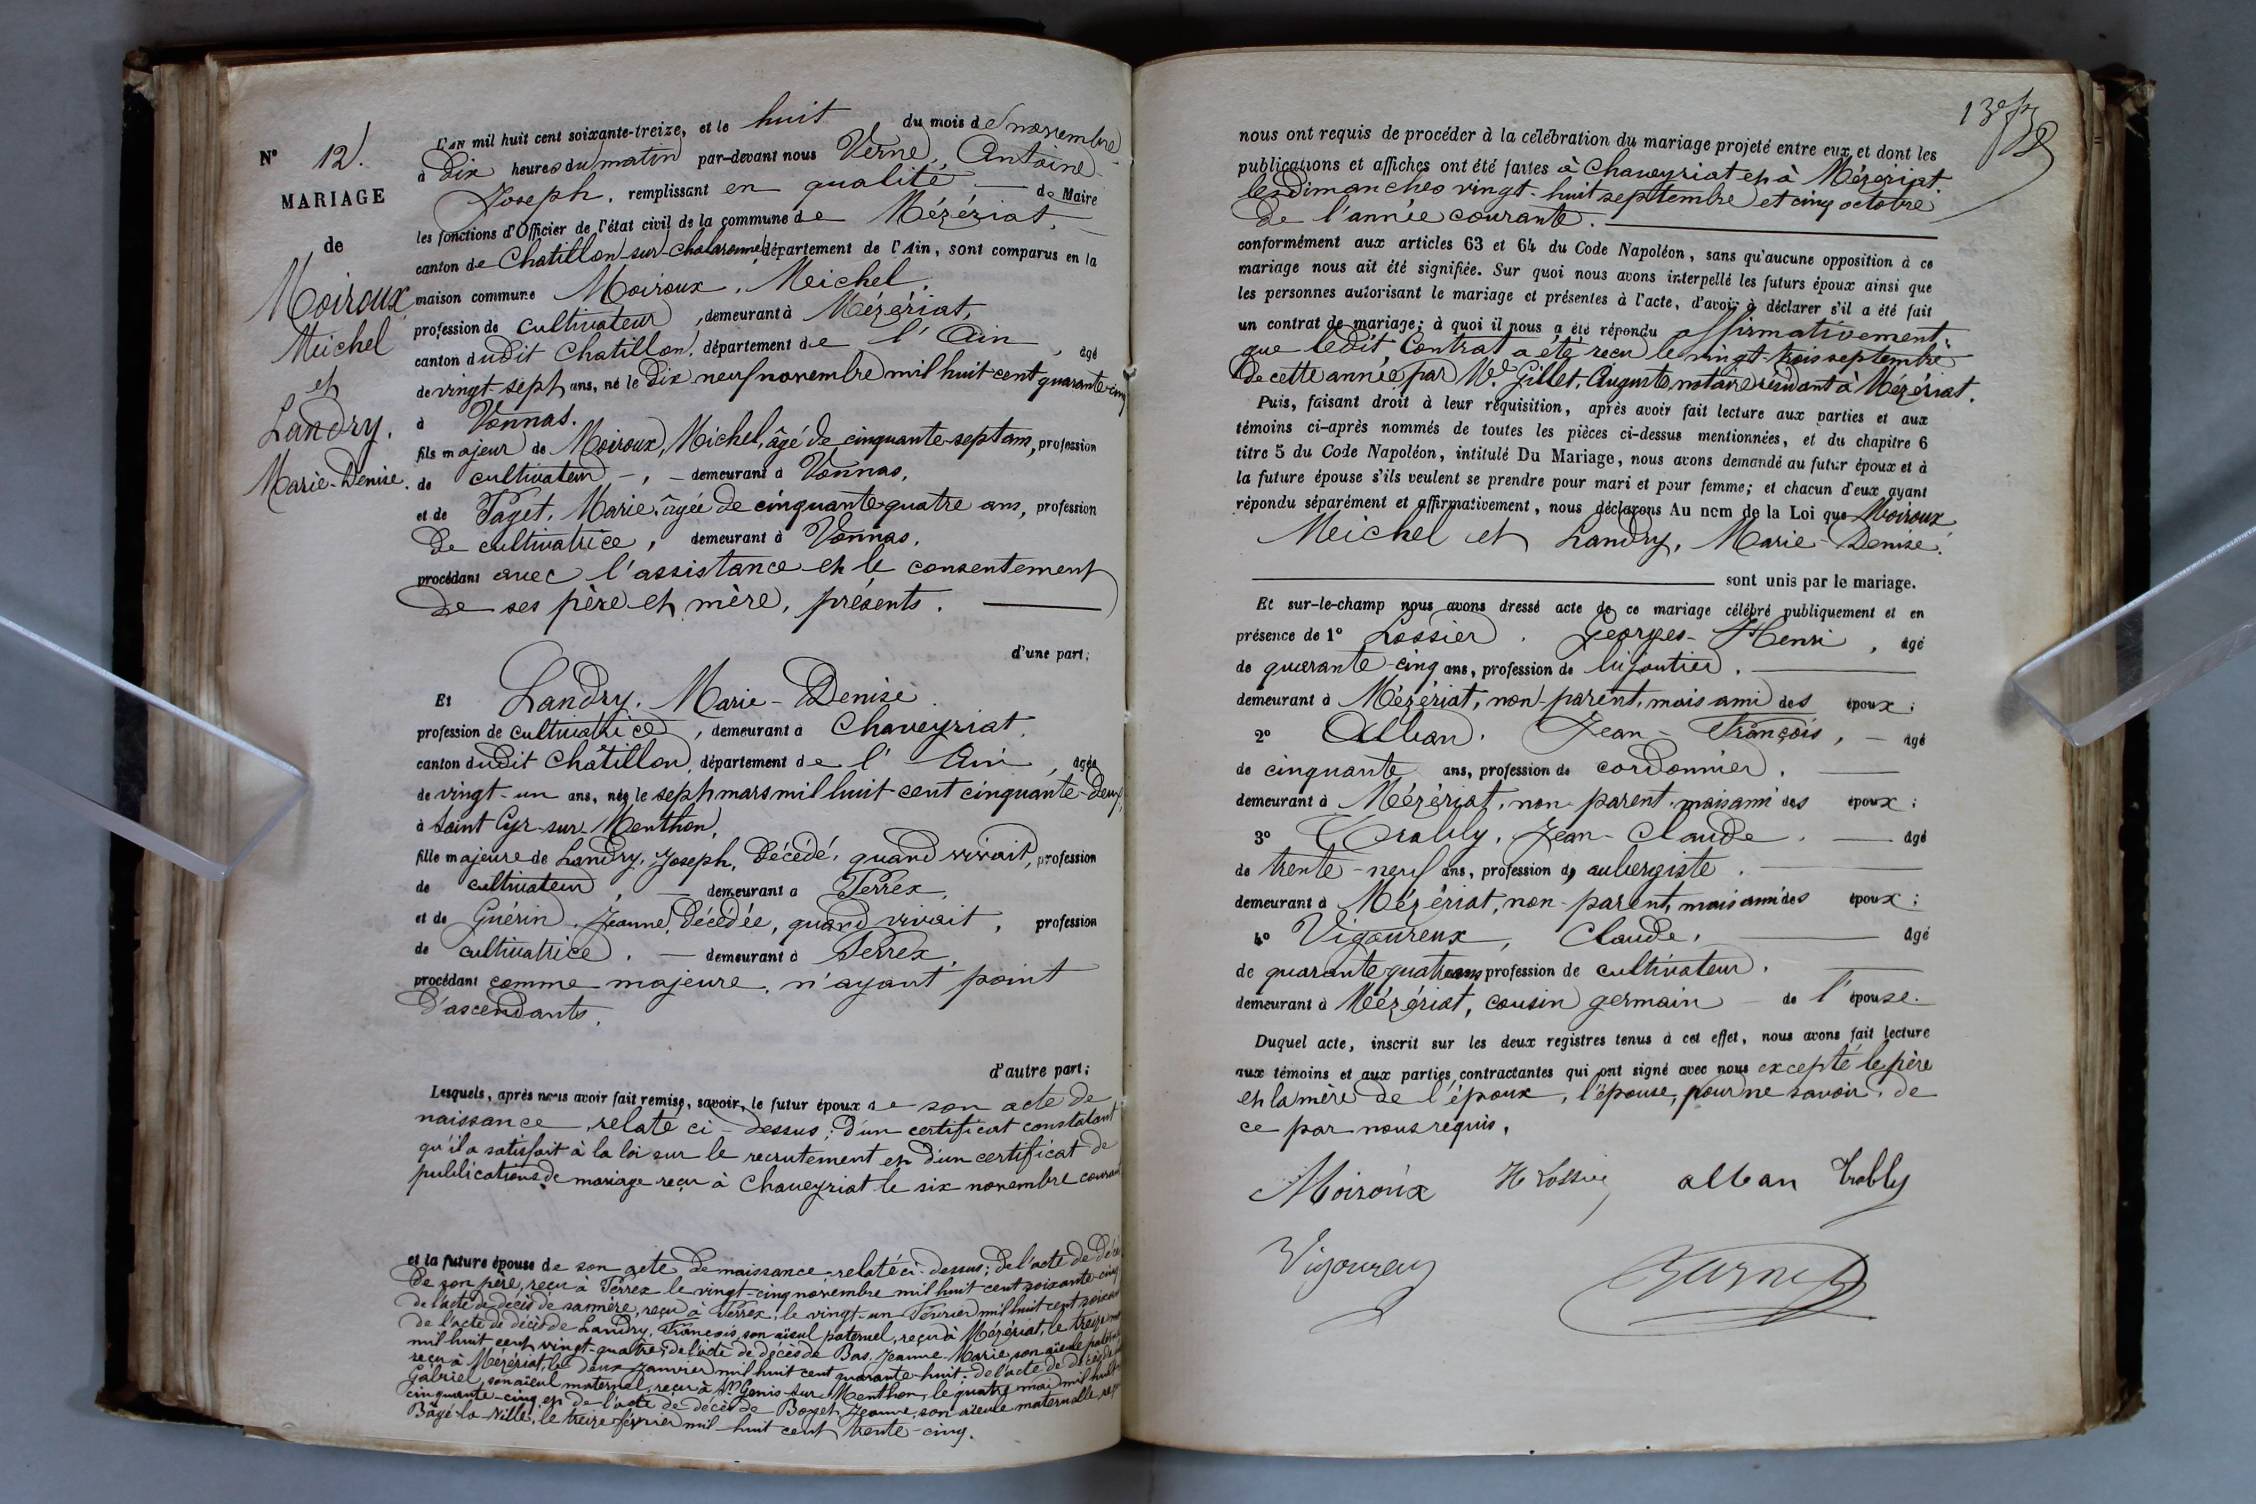 N° 12.
MARIAGE
de
Moiroux
Meichel
et
Landry,
Marie-Denise.
L'AN mil huit cent soixante-treize, et le huit du mois de novembre
à Dix heures du matin par-devant nous Verne, Antoine-
Joseph, remplissant en qualité de Maire
les fonctions d'Officier de l'état civil de la commune de Mézériat,
canton de Chatillon-sur-Chalaronne département de l'Ain, sont comparus en la
maison commune Moiroux, Meichel,
profession de cultivateur, demeurant à Mézériat,
canton dudit Chatillon, département de l'Ain, âgé
de vingt-sept ans, né le Dix neuf novembre mil huit cent quarante-cinq
à Vonnas.
fils majeur de Moiroux, Michel, âgé de cinquante-sept ans, profession
de cultivateur -, - demeurant à Vonnas,
et de Paget, Marie, âgée de cinquante-quatre ans, profession
de cultivatrice, demeurant à Vonnas,
procédant avec l'assistance et le consentement
de ses père et mère, présents.
d'une part;
Et Landry, Marie-Denise
profession de cultivatrice, demeurant à Chaveyriat,
canton dudit Châtillon, département de l'Ain, âgée
de vingt-un ans, née le sept mars mil huit cent cinquante-deux,
à Saint Cyr-sur-Menthon,
fille majeure de Landry, Joseph, Décédé, quand vivait, profession
de cultivateur, - demeurant à Perrex,
et de Guérin, Jeanne, Décédée, quand vivait, profession
de cultivatrice. - demeurant à Perrex,
procédant comme majeure, n'ayant point
d'ascendants.
d'autre part;
Lesquels, après nous avoir fait remise, savoir, le futur époux de son acte de
naissance, relaté ci-dessus; d'un certificat constatant
qu'il a satisfait à la loi sur le recrutement et d'un certificat de
publications de mariage reçu à Chaveyriat le six novembre courant
et la future épouse de son acte de naissance relaté ci-dessus; de l'acte de décès
de son père, reçu à Perrex le vingt-cinq novembre mil huit cent soixante-cinq
de l'acte de décès de sa mère, reçu à Perrex, le vingt-un Février mil huit cent
de l'acte de décès de Landry, François, son aïeul paternel, reçu à Mézériat, le treize
mil huit cent vingt-quatre; de l'acte de décès de Bas, Jeanne-Marie, son aïeule
reçu à Mézériat, le deux Janvier mil huit cent quarante-huit; de l'acte de décès de
Gabriel, son aïeul maternel, reçu à St Genis-sur-Menthon, le quatre mai mil huit
cinquante-cinq, et de l'acte de décès de Bozet, Jeanne, son aïeule maternelle, reçu
Bâgé-la-Ville, le treize février mil huit cent trente-cinq.
nous ont requis de procéder à la célébration du mariage projeté entre eux et dont les
publications et affiches ont été faites à Chaveyriat et à Mézériat.
les Dimanches vingt-huit septembre et cinq octobre
de l'année courante.
conformément aux articles 63 et 64 du Code Napoléon, sans qu'aucune opposition à ce
mariage nous ait été signifiée. Sur quoi nous avons interpellé les futurs époux ainsi que
les personnes autorisant le mariage et présentes à l'acte, d'avoir à déclarer s'il a été fait
un contrat de mariage; à quoi il nous a été répondu affirmativement;
que ledit Contrat a été reçu le vingt-trois septembre
de cette année par Me Gillet, Auguste, notaire résidant à Mézériat.
Puis, faisant droit à leur réquisition, après avoir fait lecture aux parties et aux
témoins ci-après nommés de toutes les pièces ci-dessus mentionnées, et du chapitre 6
titre 5 du Code Napoléon, intitulé Du Mariage, nous avons demandé au futur époux et à
la future épouse s'ils veulent se prendre pour mari et pour femme; et chacun d'eux ayant
répondu séparément et affirmativement, nous déclarons Au nom de la Loi que Moiroux
Meichel et Landry, Marie-Denise.
sont unis par le mariage.
Et sur-le-champ nous avons dressé acte de ce mariage célébré publiquement et en
présence de 1° Lossier, Georges-Henri, âgé
de quarante-cinq ans, profession de bijoutier.
demeurant à Mézériat, non parent, mais ami des époux;
2° Alban, Jean-François, - âgé
de cinquante ans, profession de cordonnier.
demeurant à Mézériat, non parent, mais ami des époux;
3° Trably, Jean-Claude. - âgé
de trente-neuf ans, profession d, aubergiste.
demeurant à Mézériat, non-parent, mais ami des époux;
4° Vigoureux, Claude, âgé
de quarante quatre ans profession de cultivateur.
demeurant à Mézériat, cousin germain - de l'épouse.
Duquel acte, inscrit sur les deux registres tenus à cet effet, nous avons fait lecture
aux témoins et aux parties contractantes qui ont signé avec nous excepté le père
et la mère de l'époux, l'épouse, pour ne savoir, de
ce par nous requis.
Moiroux H Lossier alban trably
Vigoureux